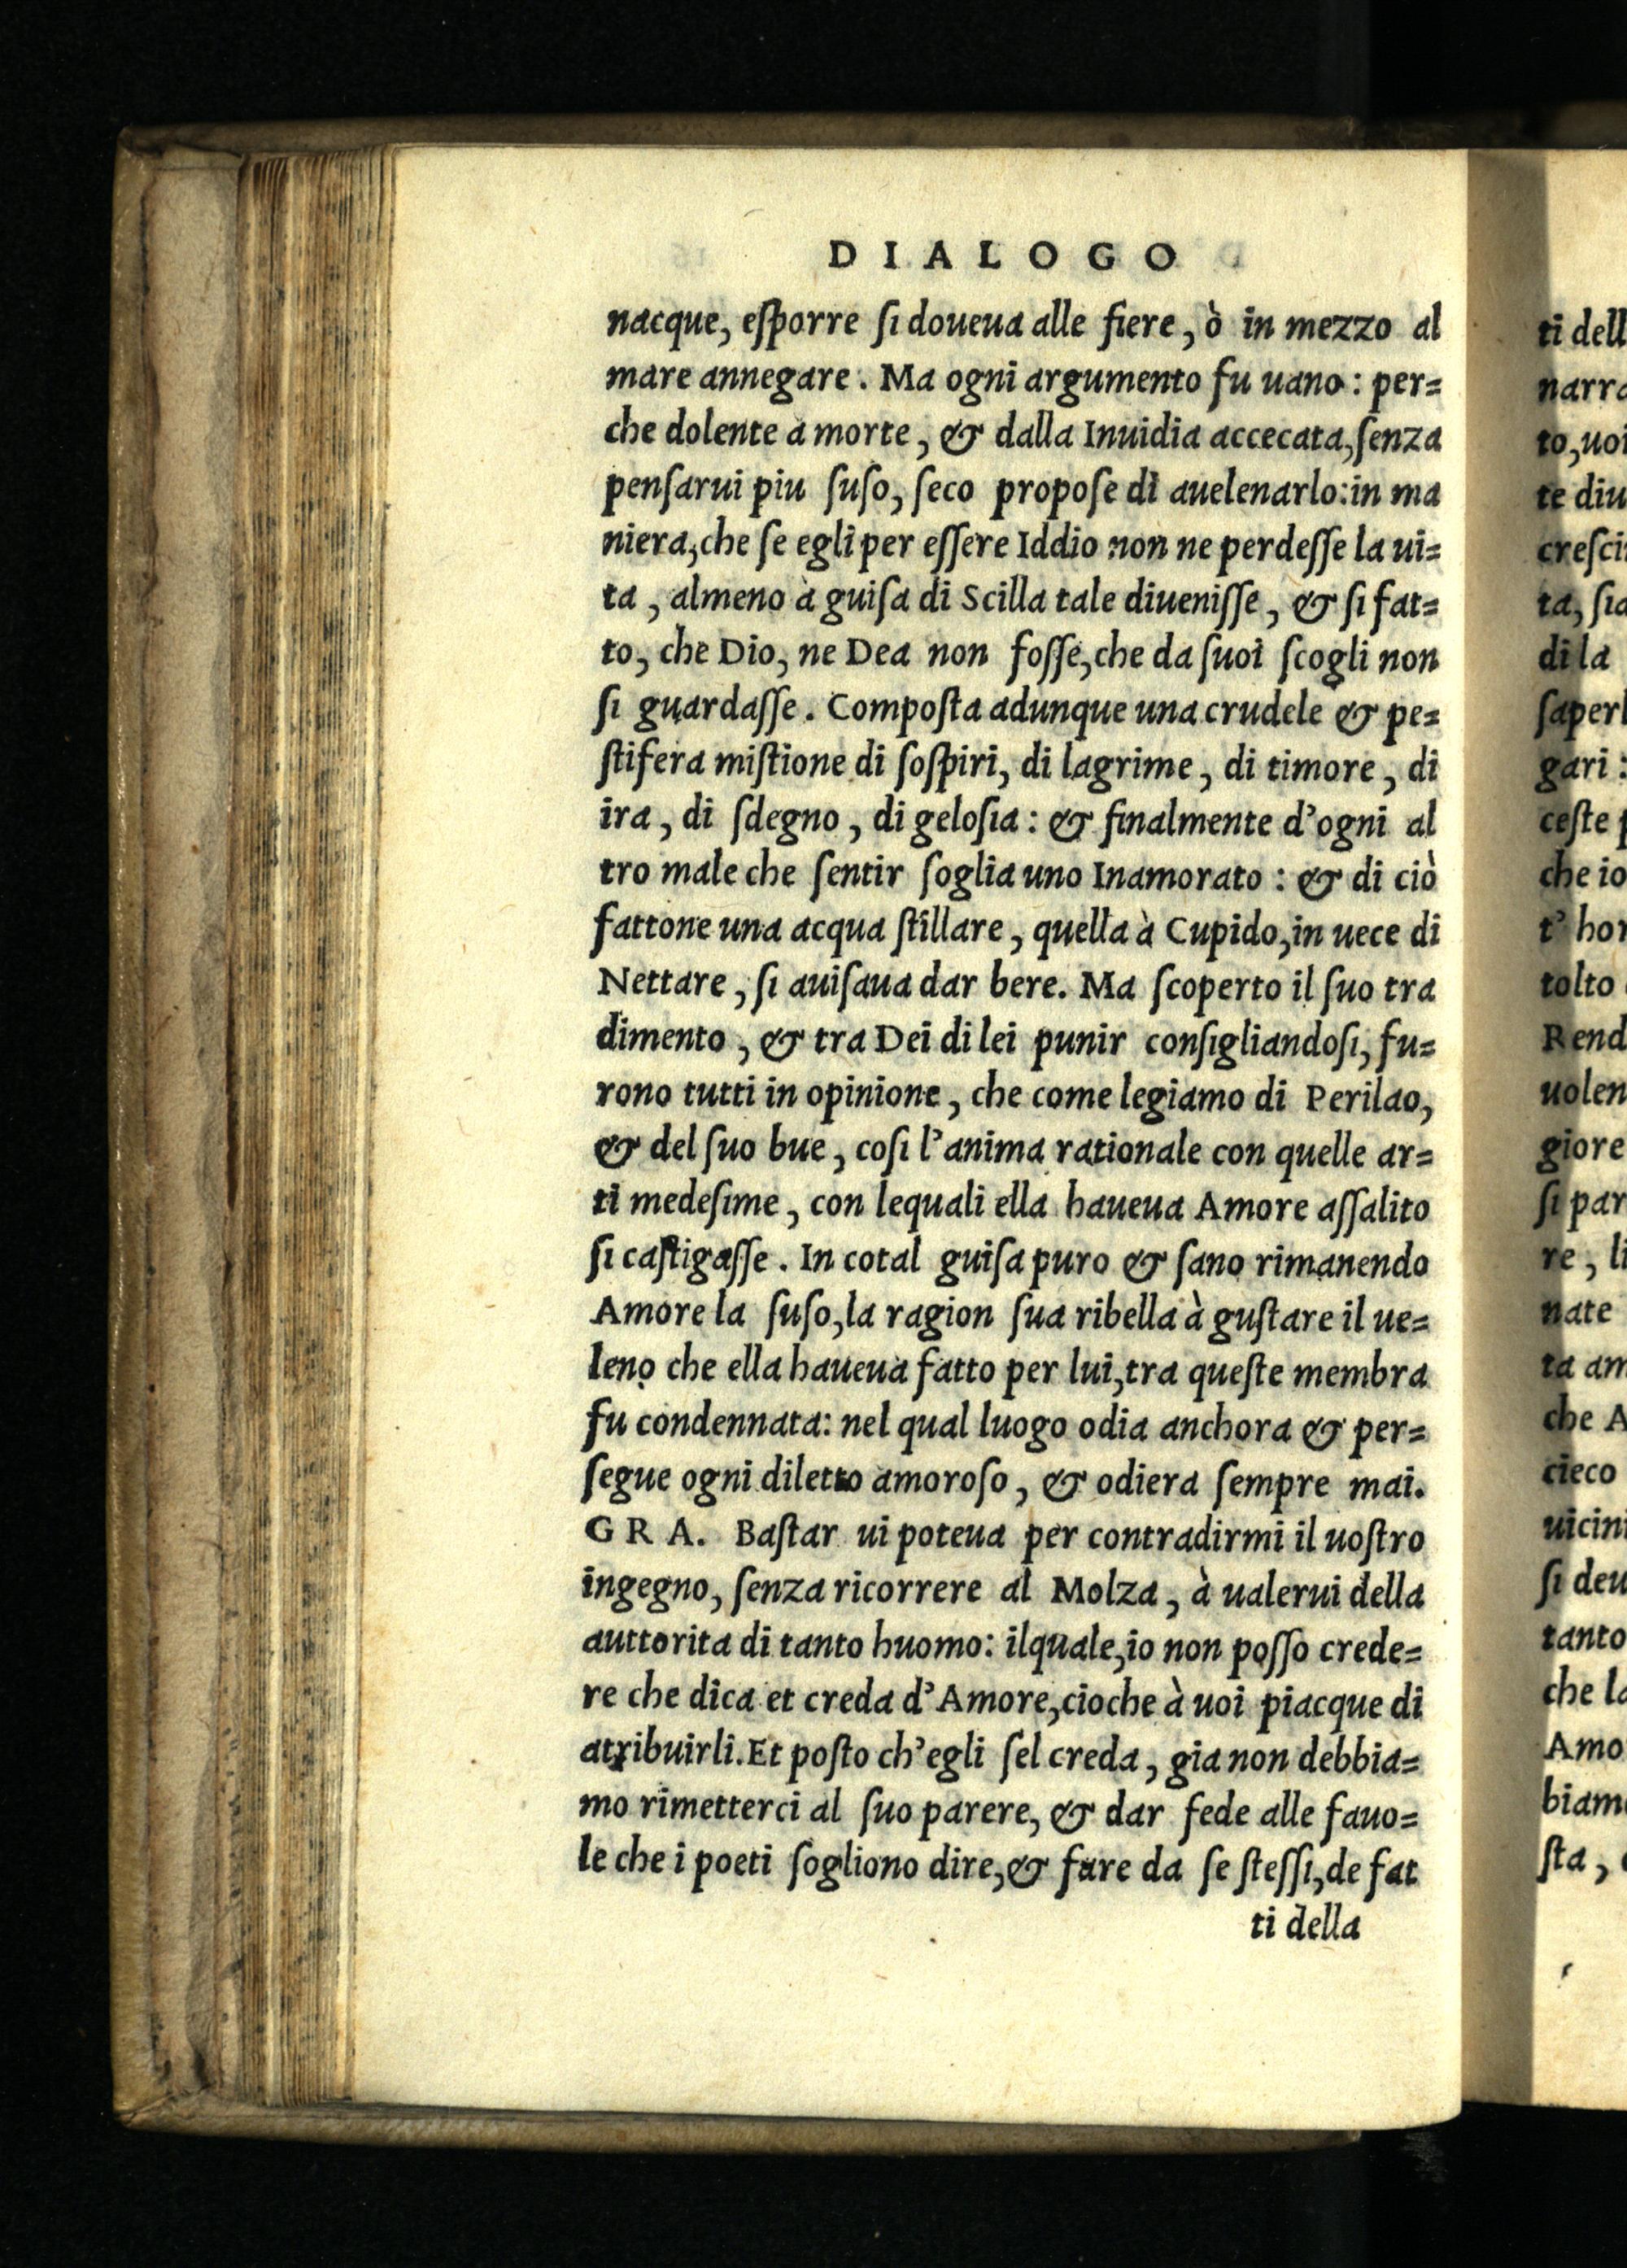 DIALOGO
nacque, eſporre ſi doueua alle fiere, ò in mezzo al
mare annegare. Ma ogni argumento fu uano: per=
che dolente à morte, & dalla Inuidia accecata, ſenza
penſarui piu ſuſo, ſeco propoſe di auelenarlo: in ma
niera, che ſe egli per eſſere Iddio non ne perdeſſe la ui=
ta, almeno à guiſa di Scilla tale diueniſſe, & ſi fat=
to, che Dio, ne Dea non foſſe, che da ſuoi ſcogli non
ſi guardaſſe. Compoſta adunque una crudele & pe=
ſtifera miſtione di ſoſpiri, di lagrime, di timore, di
ira, di ſdegno, di geloſia: & finalmente d'ogni al
tro male che ſentir ſoglia uno Inamorato: & di ciò
fattone una acqua ſtillare, quella à Cupido, in uece di
Nettare, ſi auiſaua dar bere. Ma ſcoperto il ſuo tra
dimento, & tra Dei di lei punir conſigliandoſi, fu=
rono tutti in opinione, che come legiamo di Perilao,
& del ſuo bue, coſi l'anima rationale con quelle ar=
ti medeſime, con lequali ella haueua Amore aſſalito
ſi caſtigaſſe. In cotal guiſa puro & ſano rimanendo
Amore la ſuſo, la ragion ſua ribella à guſtare il ue=
leno che ella haueua fatto per lui, tra queſte membra
fu condennata: nel qual luogo odia anchora & per=
ſegue ogni diletto amoroſo, & odiera ſempre mai.
GRA. Baſtar ui poteua per contradirmi il uoſtro
ingegno, ſenza ricorrere al Molza, à ualerui della
auttorita di tanto huomo: ilquale, io non poſſo crede=
re che dica et creda d'Amore, cioche à uoi piacque di
atribuirli. Et poſto ch'egli ſel creda, gia non debbia=
mo rimetterci al ſuo parere, & dar fede alle fauo=
le che i poeti ſogliono dire, & fare da ſe ſteſſi, de fat
ti della
ti dell
narra
to, uoi
te diu
creſci
ta, ſia
di la
ſaper
gari:
ceſte
che io
t'hor
tolto
Rend
uolen
giore
ſi par
re, li
nate
ta am
che A
cieco
uicini
ſi deu
tanto
che la
Amo
biam
ſta,